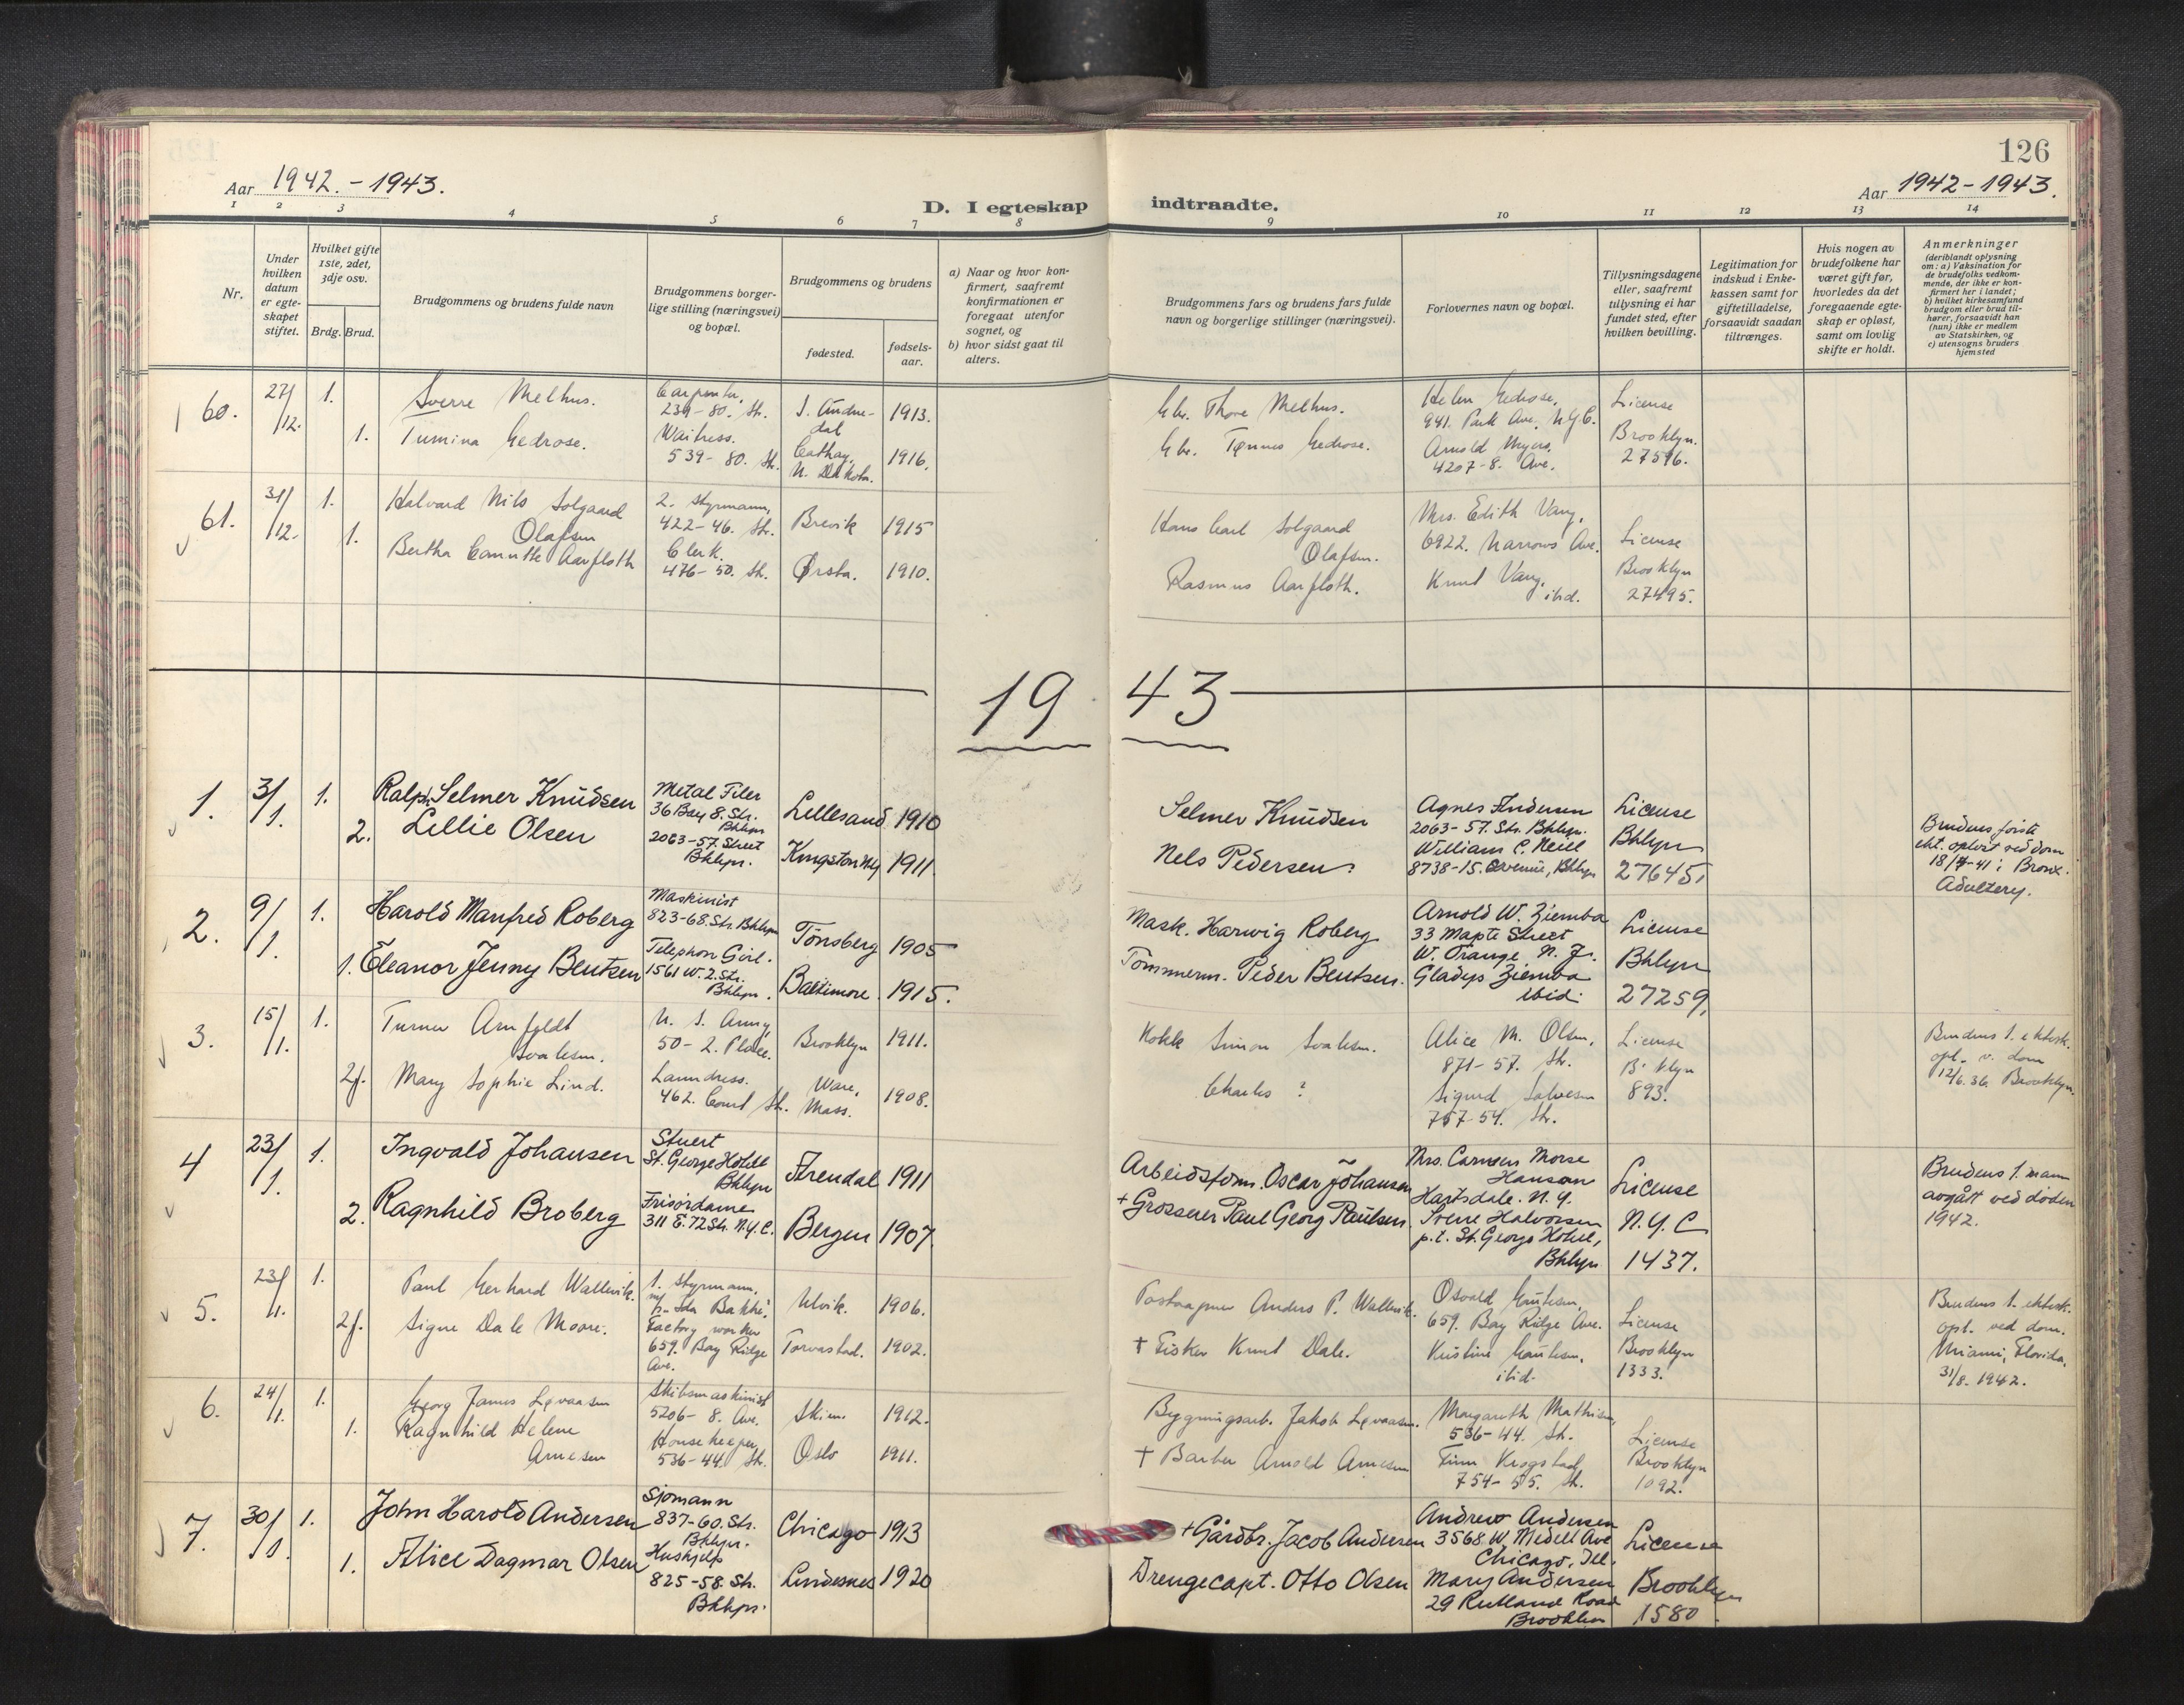 126
Aar 1942.-1943.
D. I egteskap
indtraadte.
Aar 1942-1943.
1 2 3 4 5 6 7 8 9 10 11 12 13 14
Nr.
Under hvilken datum er egteskapet stiftet.
Hvilket gifte 1ste, 2det, 3dje osv.
Brdg. Brud.
Brudgommens og brudens fulde navn
Brudgommens borgerlige stilling (næringsvei) og bopæl.
Brudgommens og brudens
fødested.
fødselsaar.
a) Naar og hvor konfirmert, saafremt konfirmationen er foregaat utenfor sognet, og
b) hvor sidst gaat til alters.
Brudgommens fars og brudens fars fulde navn og borgerlige stillinger (næringsvei).
Forlovernes navn og bopæl.
Tillysningsdagene eller, saafremt tillysning ei har fundet sted, efter hvilken bevilling.
Legitimation for indskud i Enkekassen samt for giftetilladelse, forsaavidt saadan tiltrænges.
Hvis nogen av brudefolkene har været gift før, hvorledes da det foregaaende egteskap er opløst, samt om lovlig skifte er holdt.
Anmerkninger (deriblandt oplysning om: a) Vaksination for de brudefolks vedkommende, der ikke er konfirmert her i landet; b) hvilket kirkesamfund brudgom eller brud tilhører, forsaavidt han (hun) ikke er medlem av Statskirken, og c) utensogns bruders hjemsted
60. 27/12. 1. Sverre Melhus. Carpenter, 239-80. Str. 1913.
Gbr. Thore Melhus. Helen Gedrose, 941. Park Ave, N.Y.C. License Brooklyn. 27596.
1. Tumina Gedrose. Waitress. 539-80. Str. Cathay, N. Dakota. 1916.
Gbr. Tønnes Gedrose. Arnold Myers, 4207-8. Ave.
61. 31/12. 1. Halvard Nils Solgaard Olafsen 2. styrmann, 422-46. Str. Brevik 1915
Hans Carl Solgaard Olafsen. Mrs. Edith Vang, 6922. Narrows Ave. License Brooklyn 27495.
1. Bertha Camitte Aarfloth Clerk. 476-50. Str. Ørsta. 1910.
Rasmus Aarfloth. Knut Vang, ibid.
19 43
1. 3/1. 1. Ralph Selmer Knudsen Metal Filer 36 Bay 8. Str. Bklyn Lillesand 1910
Selmer Knudsen Agnes Andersen 2063-57. Str. Bklyn. License Bklyn 27645.
2. Lillie Olsen 2063-57. Street Bklyn. Kingston N.Y. 1911.
Nels Pedersen. William C. Neill 8738-15. Avenue, Bklyn
Brudens første ekt. opløst ved dom 18/7-41 i Bronx. Adultery.
2. 9/1. 1. Harold Manfred Roberg Maskinist 823-68. Str. Bklyn Tönsberg 1905
Mask. Harwig Roberg Arnold W. Ziemba 33 Maple Street W. Orange N. J. License Bklyn 27259,
1. Eleanor Jenny Bentsen Telephon Girl. 1561 W. 2. Str. Bklyn. Baltimore. 1915.
Tömmerm. Peder Bentsen. Gladys Ziemba ibid.
3. 15/1. 1. Turner Arnfeldt Soalesen. U. S. Army, 50-2. Place. Brooklyn 1911.
Kokk Simon Soalesen. Alice M. Olsen, 871-57. Str. License B'klyn 893.
2f. Mary Sophie Lind. Laundress. 462. Court Str. Ware, Mass. 1908.
Charles ? Sigurd Salvesen 757-54. Str.
Brudens 1. ektesk. opl. v. dom 12/6.36 Brooklyn.
4 23/1. 1. Ingvald Johansen Stuert St. George Hotel Bklyn Arendal 1911
Arbeidsform. Oscar Johansen Mrs. Carmen Morse Hanson Hartsdale. N.Y. License N.Y.C 1437.
2. Ragnhild Broberg Frisördame 311 E. 72 Str. N.Y.C. Bergen 1907.
+Grosserer Paul Georg Paulsen. Sverre Halvorsen p.t. St. George Hotel, Bklyn
Brudens 1. mann avgått ved döden 1942.
5. 23/1. 1. Paul Gerhard Wallevik. 1. styrmann, m/s "Ida Bakke" Ulvik. 1906.
Postaapner Anders P. Wallevik. Osvald Knutsen, 659. Bay Ridge Ave. License Brooklyn 1333.
2f. Signe Dale Moore. Factory worker 659. Bay Ridge Ave. Torvastad. 1902.
+ Fisker Knut Dale. Kristine Knutsen, ibid.
Brudens 1. ektesk. opl. ved dom. Miami, Florida, 31/8. 1942.
6. 24/1. 1. Georg James Løvaasen Skibsmaskinist 5206-8. Ave. Skien. 1912.
Bygningsarb. Jakob Løvaasen. Margareth Mathisen, 536-44. Str. License Brooklyn 1092.
1. Ragnhild Helene Arnesen Housekeeper, 536-44. Str. Oslo 1911.
+ Barber Arnold Arnesen Finn Krogstad, 754-55. Str.
7. 30/1. 1. John Harold Andersen Sjömann 837-60. Str. Bklyn. Chicago 1913
+Gårdbr. Jacob Andersen Andrew Andersen 3568 W. Medell Ave Chicago, Ill. License Brooklyn 1580.
1. Alice Dagmar Olsen Hushjelp 825-58. Str. Bklyn. Lindesnes 1920
Drengecapt. Otto Olsen Mary Andersen 29 Rutland Road Brooklyn